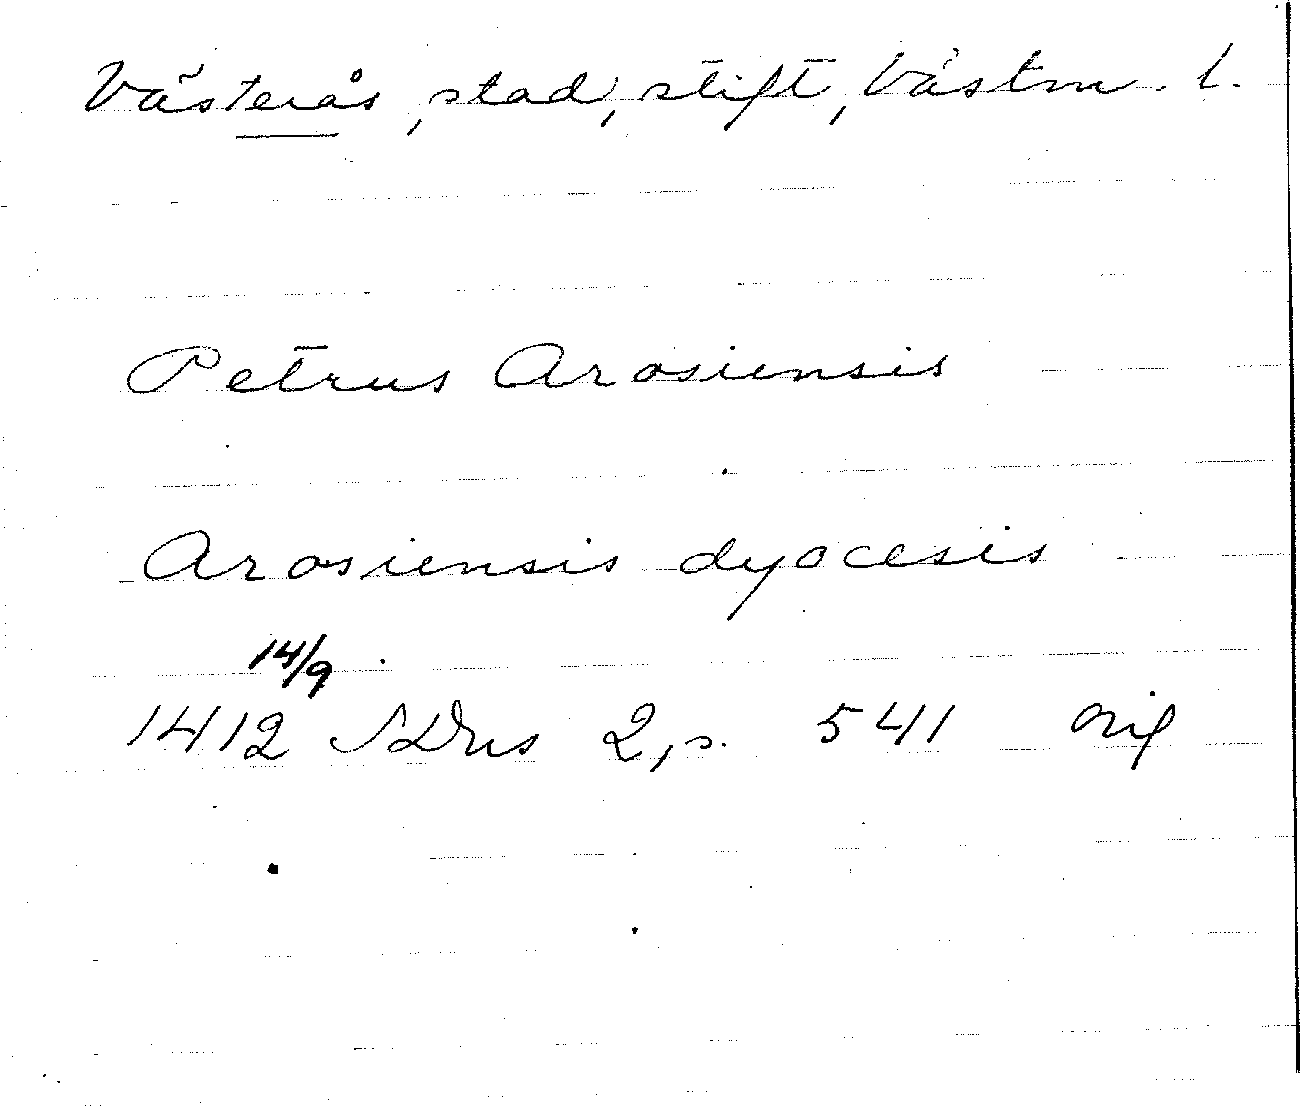 Västerås, stad, stift, Västm. l.
Petrus Arosiensis
Arosiensis dyocesis
14/9
1412 SDns 2, s. 541 orig